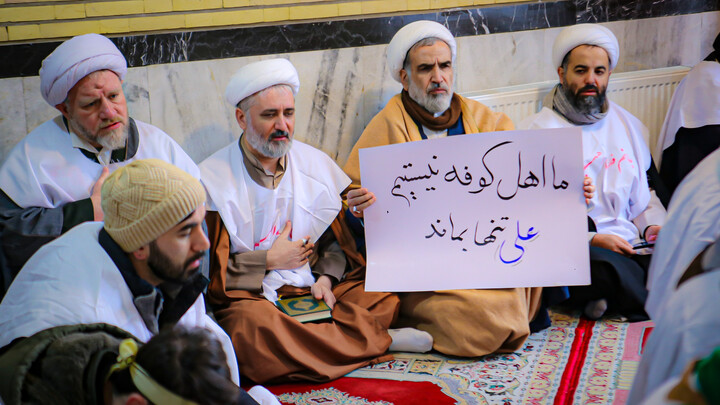 ما اهل کوفه نیستیم
علی تنها بماند